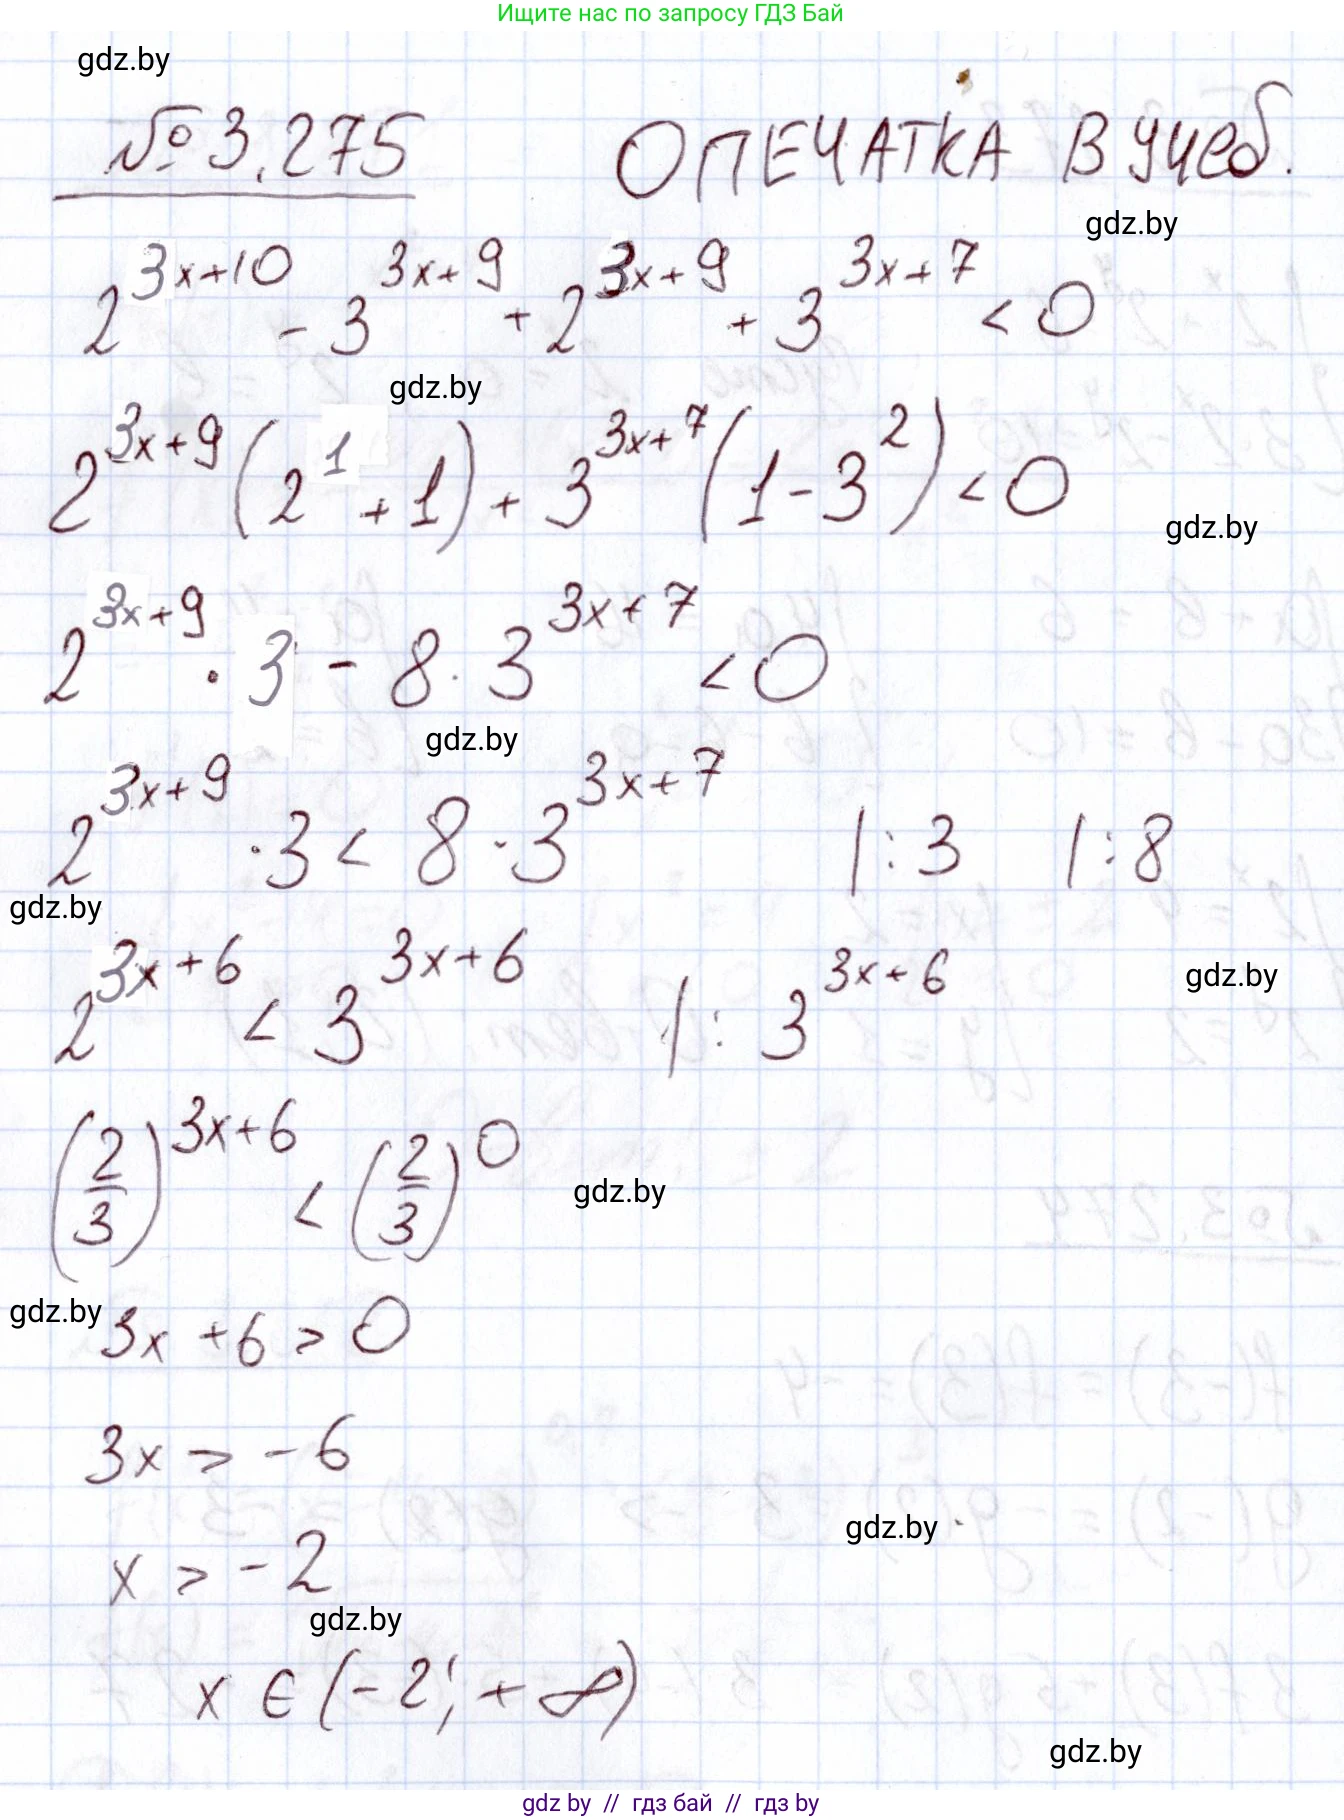 Ищите нас по запросу ГДЗ Бай
gdz.by
№ 3.275 ОПЕЧАТКА В УЧЕБ.
gdz.by
2^{3x+10} - 3^{3x+9} + 2^{3x+9} + 3^{3x+7} < 0
gdz.by
2^{3x+9} (2^1 + 1) + 3^{3x+7} (1 - 3^2) < 0
gdz.by
2^{3x+9} · 3 - 8 · 3^{3x+7} < 0
gdz.by
2^{3x+9} · 3 < 8 · 3^{3x+7} |:3 |:8
gdz.by
2^{3x+6} < 3^{3x+6} |: 3^{3x+6}
gdz.by
(2/3)^{3x+6} < (2/3)^0
gdz.by
gdz.by
3x + 6 > 0
3x > -6
gdz.by
x > -2
gdz.by
x ∈ (-2; +∞)
gdz.by
gdz by // гдз бай // гдз by